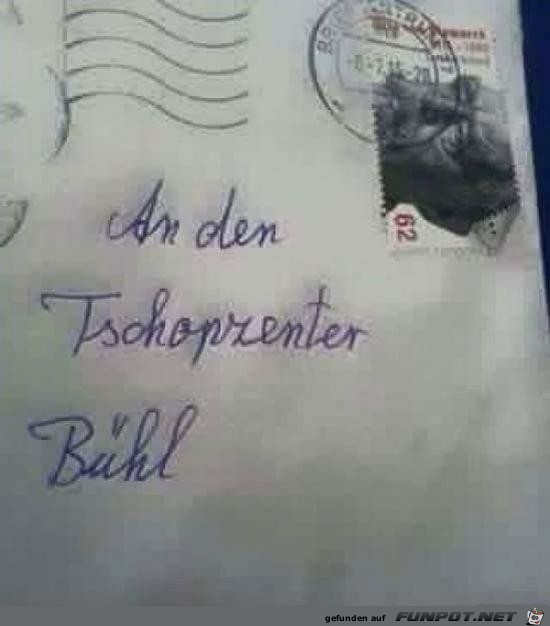 62
An den
Tschopzenter
Bühl
gefunden auf FUNPOT.NET